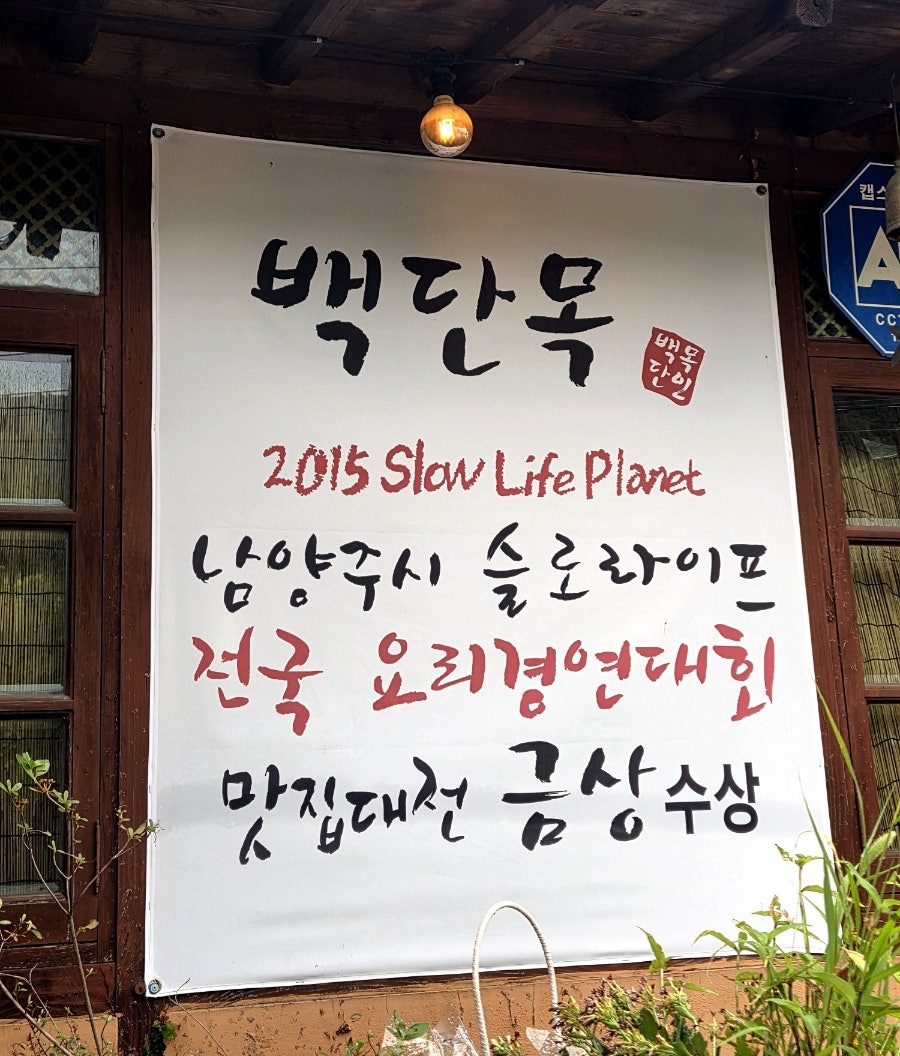 백단목
백목
단인
2015 Slow Life Planet
남양주시 슬로라이프
전국 요리경연대회
맛집대전 금상 수상
캡스